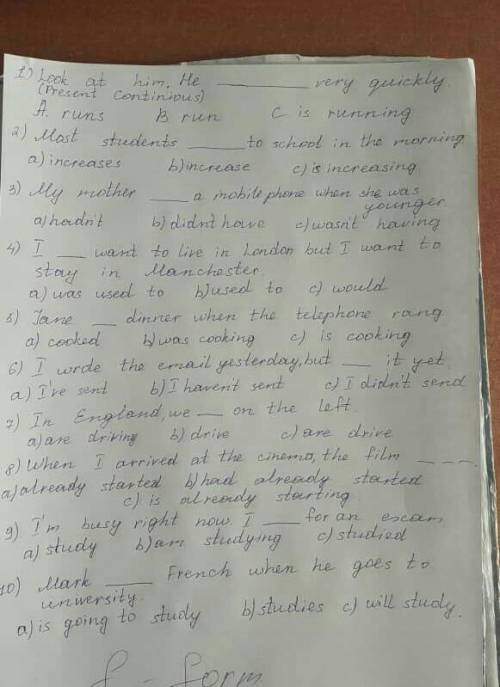 1) Look at him. He ________ very quickly.
(Present Continious)
A. runs B run C is running
2) Most students ____ to school in the morning
a) increases b) increase c) is increasing
3) My mother ___ a mobile phone when she was
younger.
a) hadn't b) didn't have c) wasn't having
4) I __ want to live in London but I want to
stay in Manchester.
a) was used to b) used to c) would
5) Jane __ dinner when the telephone rang
a) cooked b) was cooking c) is cooking
6) I wrote the email yesterday, but __ it yet.
a) I've sent b) I haven't sent c) I didn't send
7) In England, we __ on the left.
a) are driving b) drive c) are drive
8) When I arrived at the cinema, the film _ _ _.
a) already started b) had already started
c) is already starting
9) I'm busy right now. I ___ for an exam
a) study b) am studying c) studied
10) Mark ____ French when he goes to
university.
a) is going to study b) studies c) will study.
form